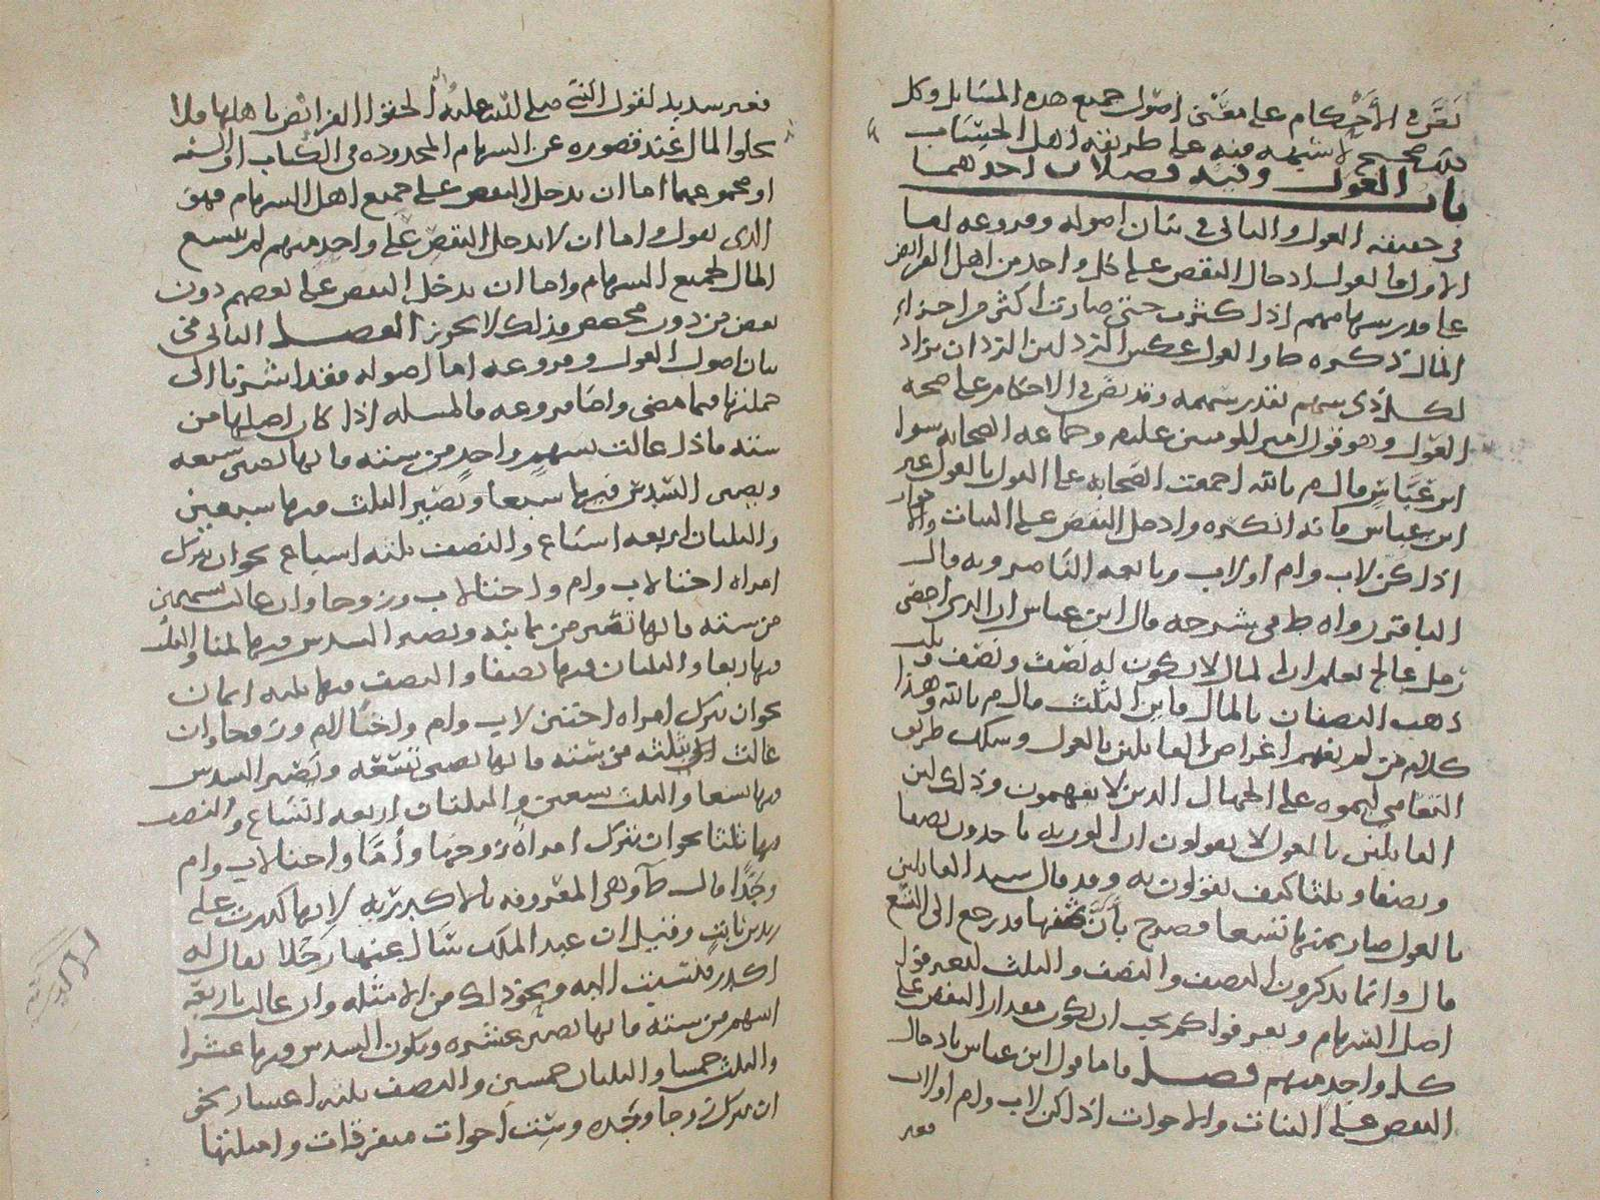 نص في الأحكام على معنى أصول جميع هذه المسايل وكل
ذلك صحيح لا شبهة فيه على طريقة اهل الحساب
باب العول وفيه فصلان احدهما
في حقيقة العول والثاني في بيان اصوله وفروعه اما
الاول فالعول ادخال النقص على كل واحد من اهل الفرايض
على قدر سهامهم اذا كثرت حتى صارت اكثر من اجزاء
المال ذكره طا والعول عكس الرد لان الرد ان يزاد
لكل ذي سهم بقدر سهمه وقد نص في الاحكام على صحة
العول وهو قول امير المومنين عليم وجماعة الصحابة سوا
ابن عباس قال م بالله اجمعت الصحابة على القول بالعول غير
ابن عباس فانه انكره وادخل النقص على البنات والاخوات
اذا كن لاب وام او لاب وتابعه الناصر وبه قال
الباقر رواه ط في شرحه قال ابن عباس ان الذي احصى
رمل عالج يعلم ان المال لا يكون له نصف ونصف وثلث
ذهب النصفان بالمال فاين الثلث قال م بالله وهذا
كلام من لم يفهم اغراض القايلين بالعول وسلك طريق
التعامي ليموه على الجهال الذين لا يفهمون وذلك لان
القايلين بالعول لا يقولون ان الورثة ياخذون نصفا
ونصفا وثلثا كيف يقولون به وقد قال سيد القايلين
بالعول صار ثمنها تسعا فصرح بأن ثمنها قد رجع الى التسع
قال وانما يذكرون النصف والنصف والثلث ليعرفوا
اصل السهام ويعرفوا كم يجب ان يكون مقدار النقص على
كل واحد منهم فصل فاما قول ابن عباس بادخال
النقص على البنات والاخوات اذا كن لاب وام او لاب
فغير
فغير سديد لقول النبي صلى الله عليه واله الحقوا الفرائض باهلها ولا
يخلوا المال عند قصوره عن السهام المحدودة في الكتاب او السنة
او مجموعهما اما ان يدخل النقص على جميع اهل السهام فهو
الذي نقول واما ان لا يدخل النقص على واحد منهم لم يتسع
المال لجميع السهام واما ان يدخل النقص على بعضهم دون
بعض من دون مخصص فذلك لا يجوز الفصل الثاني في
بيان اصول العول وفروعه اما اصوله فقد اشرنا الى
جملتها فيما مضى واما فروعه فالمسلة اذا كان اصلها من
ستة فاذا عالت بسهم واحد من ستة فانها تصير سبعة
ويصير السدس فيها سبعا ويصير الثلث فيها سبعين
والثلثان اربعة اسباع والنصف ثلثة اسباع نحو ان تترك
امراة اختا لاب وام واختا لاب وزوجا وان عالت بسهمين
من ستة فانها تصير من ثمانية ويصير السدس فيها ثمنا والثلث
فيها ربعا والثلثان فيها نصفا والنصف فيها ثلثة اثمان
نحو ان تترك امراة اختين لاب وام واختا لام وزوجا وان
عالت بثلثة من ستة فانها تصير تسعة ويصير السدس
فيها تسعا والثلث تسعين والثلثان اربعة اتساع والنصف
فيها ثلثا نحو ان تترك امراة زوجها وأما واختا لاب وام
وجدا قال طا وهي المعروفة بالاكدرية لانها كدرت على
زيد بن ثابت وقيل ان عبد الملك سال عنها رجلا يقال له
اكدر فنسبت اليه ونحو ذلك من الامثلة وان عالت باربعة
اسهم من ستة فانها تصير عشرة ويكون السدس فيها عشرا
والثلث خمسا والثلثان خمسين والنصف ثلثة اعشار نحو
ان تترك زوجا وجدة وست اخوات متفرقات وامثلتها